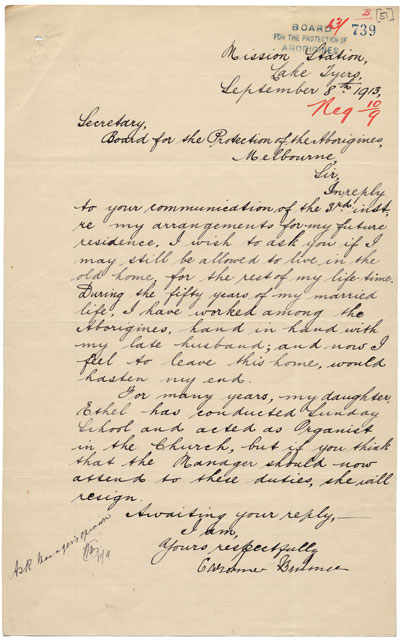 [51]
BOARD
FOR THE PROTECTION OF
ABORIGINES
739
Mission Station,
Lake Tyers,
September 8th 1913,
Neg 10/9
Secretary,
Board for the Protection of the Aborigines,
Melbourne,
Sir,
In reply
to your communication of the 3rd. inst.
re my arrangements for my future
residence, I wish to ask you if I
may still be allowed to live in the
old home, for the rest of my life-time.
During the fifty years of my married
life, I have worked among the
Aborigines, hand in hand with
my late husband; and now I
feel to leave this home, would
hasten my end.
For many years, my daughter,
Ethel has conducted Sunday
School and acted as Organist
in the Church, but if you think
that the Manager should now
attend to these duties, she will
resign.
Awaiting your reply,—
I am,
Yours respectfully
Caroline Bulmer
Ask Manager's opinion